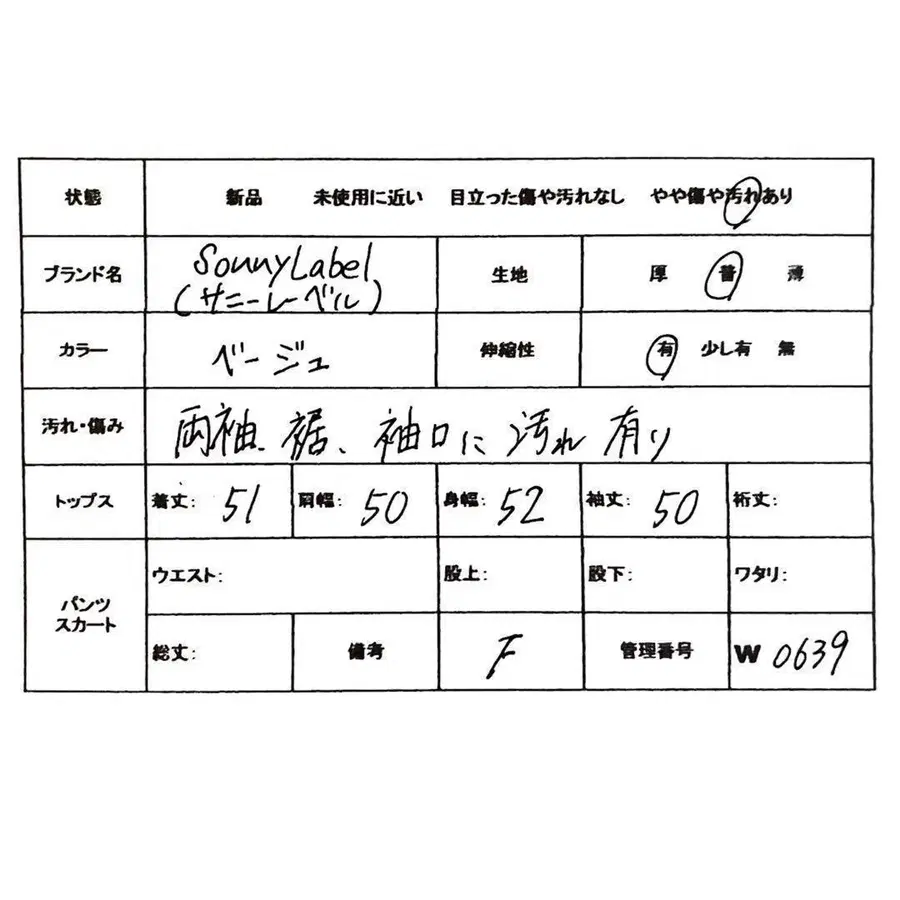 状態 新品 未使用に近い 目立った傷や汚れなし やや傷や汚れあり
ブランド名 SonnyLabel 生地 厚 普 薄
(サニーレーベル)
カラー ベージュ 伸縮性 有 少し有 無
汚れ・傷み 両袖、裾、袖口に汚れ有り
トップス 着丈: 51 肩幅: 50 身幅: 52 袖丈: 50 裄丈:
パンツ
スカート
ウエスト: 股上: 股下: ワタリ:
総丈: 備考 F 管理番号 W 0639